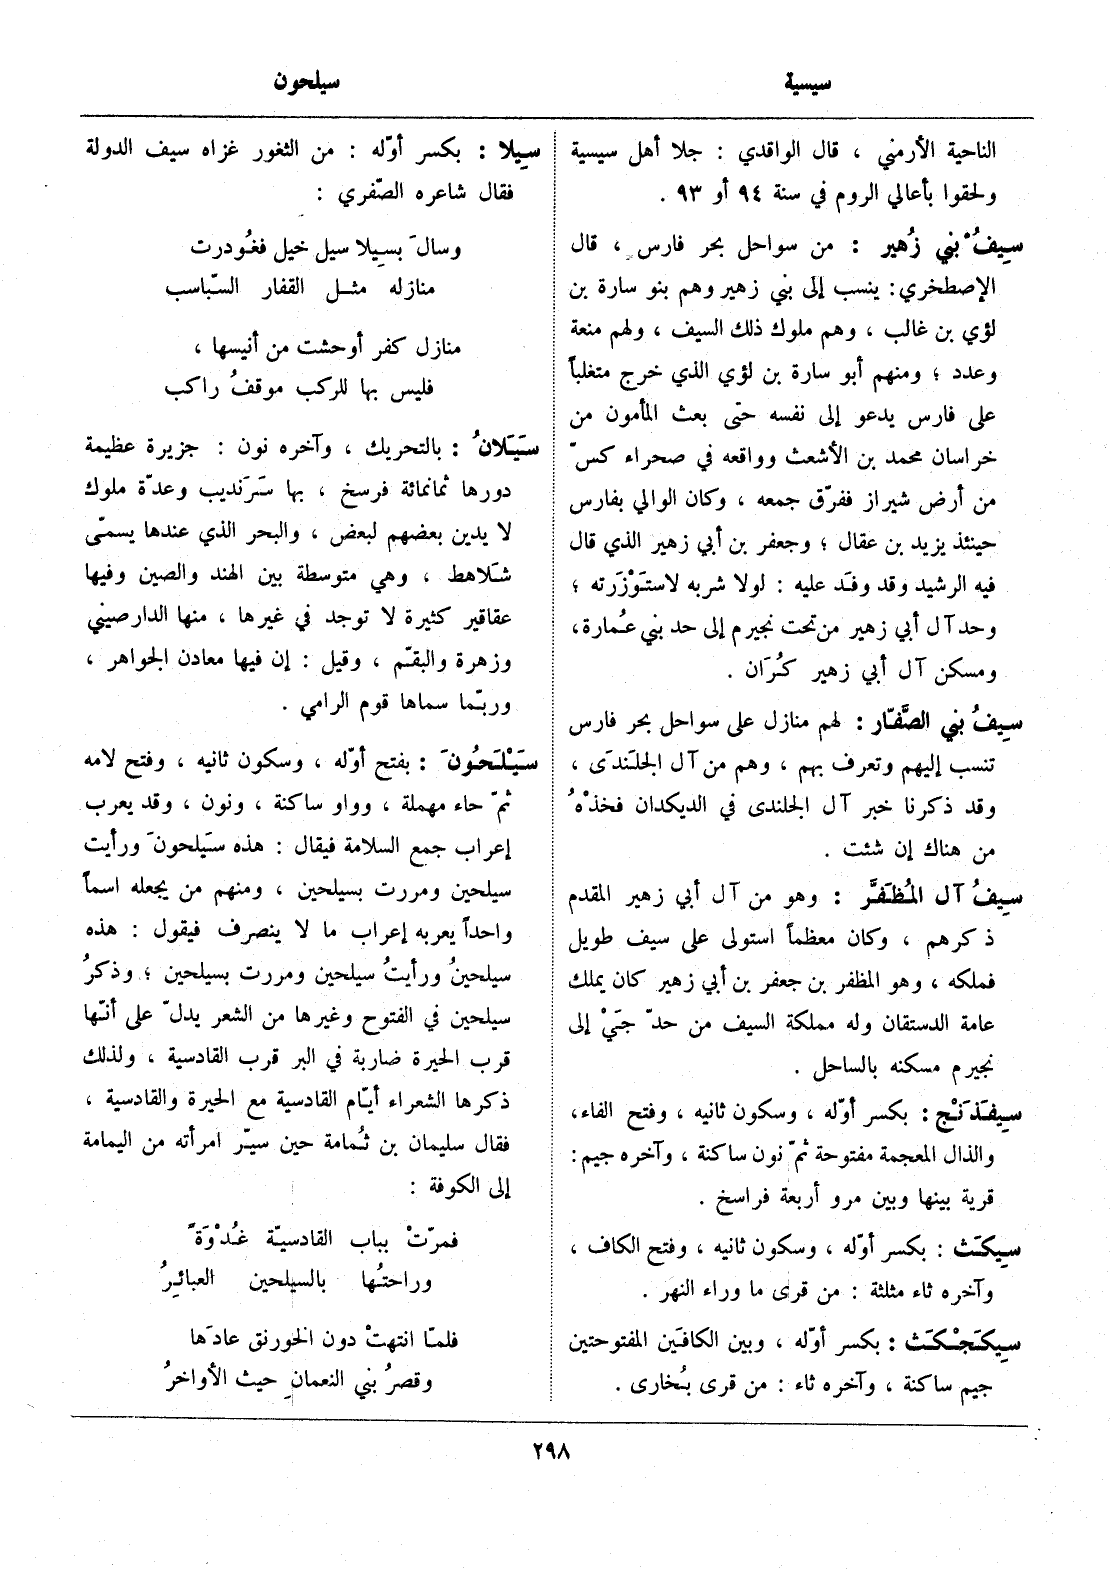 سيسية
سيلحون
الناحية الأرمني ، قال الواقدي : جلا أهل سيسية
ولحقوا بأعالي الروم في سنة ٩٤ أو ٩٣ .
سِيفُ بني زُهير : من سواحل بحر فارس ، قال
الإصطخري : ينسب إلى بني زهير وهم بنو سارة بن
لؤي بن غالب ، وهم ملوك ذلك السيف ، ولهم منعة
وعدد ؛ ومنهم أبو سارة بن لؤي الذي خرج متغلباً
على فارس يدعو إلى نفسه حتى بعث المأمون من
خراسان محمد بن الأشعث وواقعه في صحراء كسّ
من أرض شيراز ففرّق جمعه ، وكان الوالي بفارس
حينئذ يزيد بن عقال ؛ وجعفر بن أبي زهير الذي قال
فيه الرشيد وقد وفَد عليه : لولا شربه لاستَوْزَرته ؛
وحد آل أبي زهير من تحت نجيرم إلى حد بني عُمارة ،
ومسكن آل أبي زهير كُرَان .
سِيفُ بني الصَّفّار : لهم منازل على سواحل بحر فارس
تنسب إليهم وتعرف بهم ، وهم من آل الجلَندَى ،
وقد ذكرنا خبر آل الجلندى في الديكدان فخذْهُ
من هناك إن شئت .
سِيفُ آل المُظَفَّر : وهو من آل أبي زهير المقدم
ذكرهم ، وكان معظماً استولى على سيف طويل
فملكه ، وهو المظفر بن جعفر بن أبي زهير كان يملك
عامة الدستقان وله مملكة السيف من حدّ جَيْ إلى
نجيرم مسكنه بالساحل .
سِيفَذَنْج : بكسر أوّله ، وسكون ثانيه ، وفتح الفاء ،
والذال المعجمة مفتوحة ثمّ نون ساكنة ، وآخره جيم :
قرية بينها وبين مرو أربعة فراسخ .
سِيكَث : بكسر أوّله ، وسكون ثانيه ، وفتح الكاف ،
وآخره ثاء مثلثة : من قرى ما وراء النهر .
سِيكَجْكَث : بكسر أوّله ، وبين الكافَين المفتوحتين
جيم ساكنة ، وآخره ثاء : من قرى بُخارى .
سِيلا : بكسر أوّله : من الثغور غزاه سيف الدولة
فقال شاعره الصّفري :
وسالَ بسِيلا سيل خيل فغُودرت
منازله مثل القفار السّباسب
منازل كفر أوحشت من أنيسها ،
فليس بها للركب موقفُ راكب
سَيَلانُ : بالتحريك ، وآخره نون : جزيرة عظيمة
دورها ثمانمائة فرسخ ، بها سَرَنديب وعدّة ملوك
لا يدين بعضهم لبعض ، والبحر الذي عندها يسمّى
شَلاهط ، وهي متوسطة بين الهند والصين وفيها
عقاقير كثيرة لا توجد في غيرها ، منها الدارصيني
وزهرة والبقّم ، وقيل : إن فيها معادن الجواهر ،
وربّما سماها قوم الرامي .
سَيْلَحُونَ : بفتح أوّله ، وسكون ثانيه ، وفتح لامه
ثمّ حاء مهملة ، وواو ساكنة ، ونون ، وقد يعرب
إعراب جمع السلامة فيقال : هذه سَيلحونَ ورأيت
سيلحين ومررت بسيلحين ، ومنهم من يجعله اسماً
واحداً يعربه إعراب ما لا ينصرف فيقول : هذه
سيلحينُ ورأيتُ سيلحين ومررت بسيلحين ؛ وذكرُ
سيلحين في الفتوح وغيرها من الشعر يدلّ على أنّها
قرب الحيرة ضاربة في البر قرب القادسية ، ولذلك
ذكرها الشعراء أيّام القادسية مع الحيرة والقادسية ،
فقال سليمان بن ثُمامة حين سيّر امرأته من اليمامة
إلى الكوفة :
فمرّتْ بباب القادسيّة غُدْوَةً
وراحتُها بالسيلحين العبائِرُ
فلمّا انتهتْ دون الخورنق عادَها
وقصرُ بني النعمانِ حيث الأواخرُ
٢٩٨